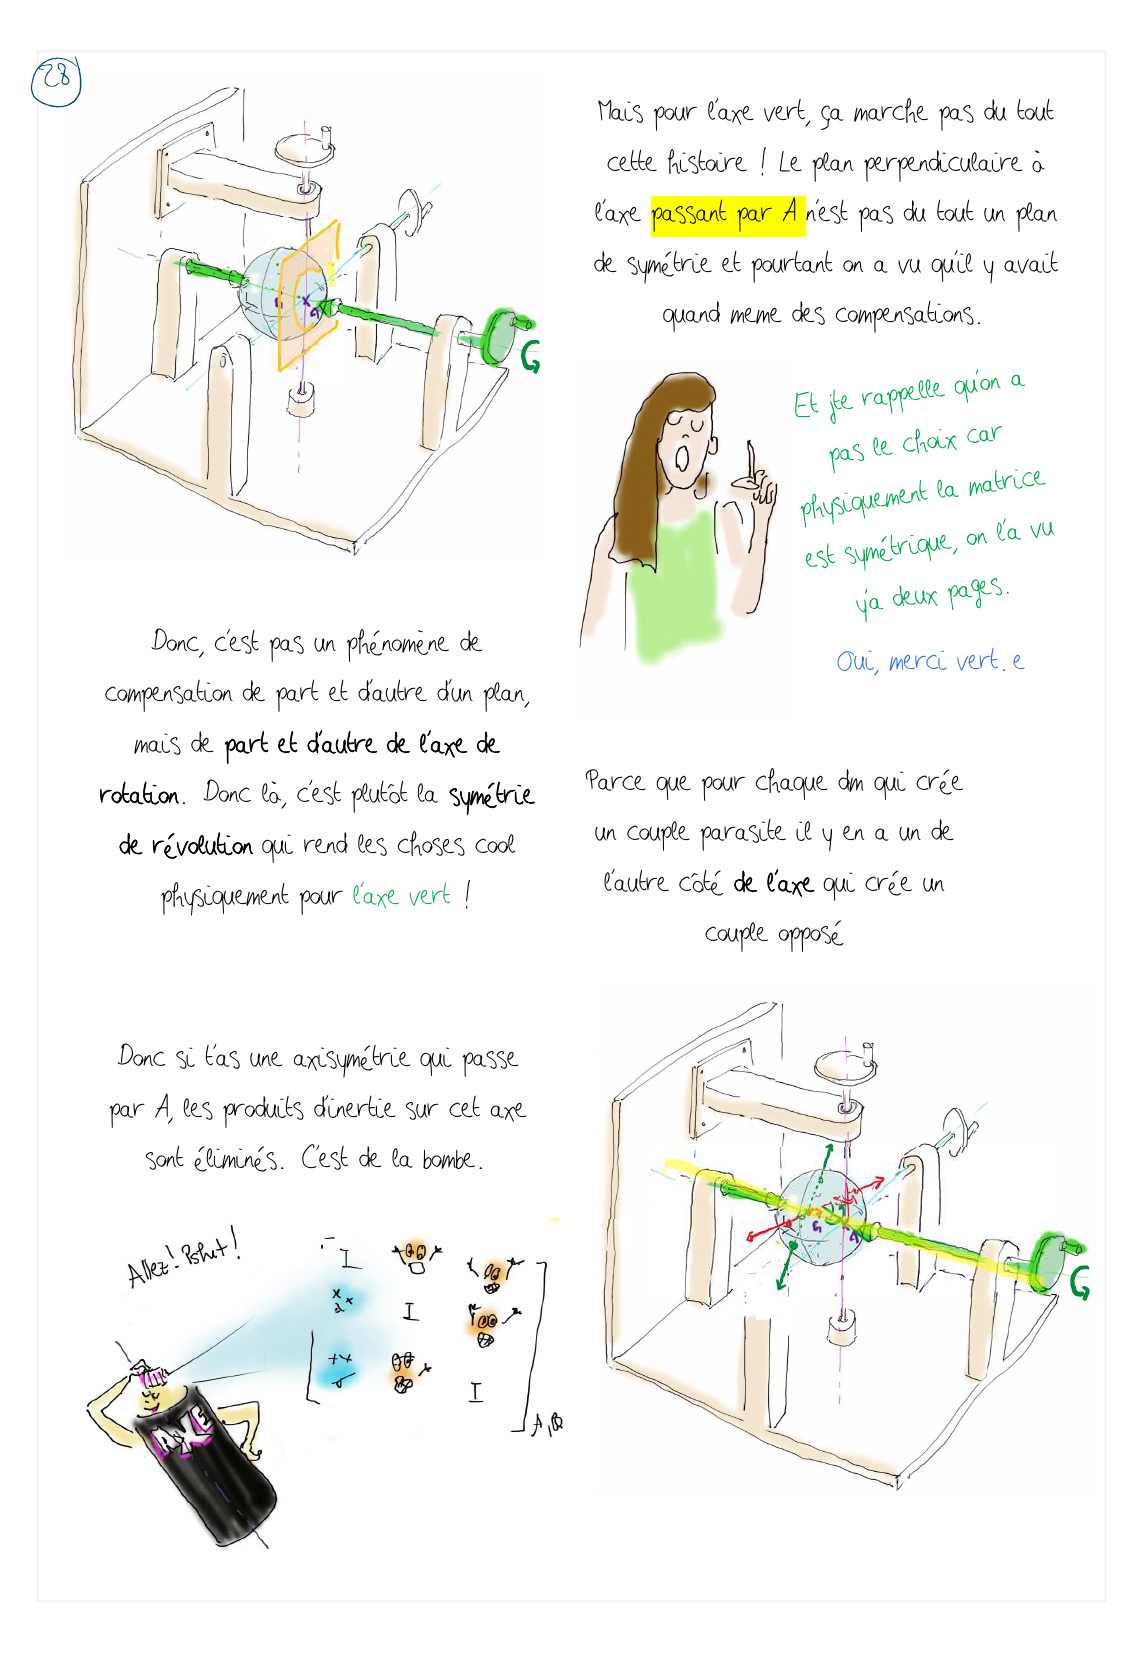 28
Mais pour l'axe vert, ça marche pas du tout
cette histoire ! Le plan perpendiculaire à
l'axe passant par A n'est pas du tout un plan
de symétrie et pourtant on a vu qu'il y avait
quand meme des compensations.
Et j'te rappelle qu'on a
pas le choix car
physiquement la matrice
est symétrique, on l'a vu
y'a deux pages.
Oui, merci vert.e
Donc, c'est pas un phénomène de
compensation de part et d'autre d'un plan,
mais de part et d'autre de l'axe de
rotation. Donc là, c'est plutôt la symétrie
de révolution qui rend les choses cool
physiquement pour l'axe vert !
Parce que pour chaque dm qui crée
un couple parasite il y en a un de
l'autre côté de l'axe qui crée un
couple opposé
Donc si t'as une axisymétrie qui passe
par A, les produits d'inertie sur cet axe
sont éliminés. C'est de la bombe.
Allez! Pshut!
I
I
I
A
G
A